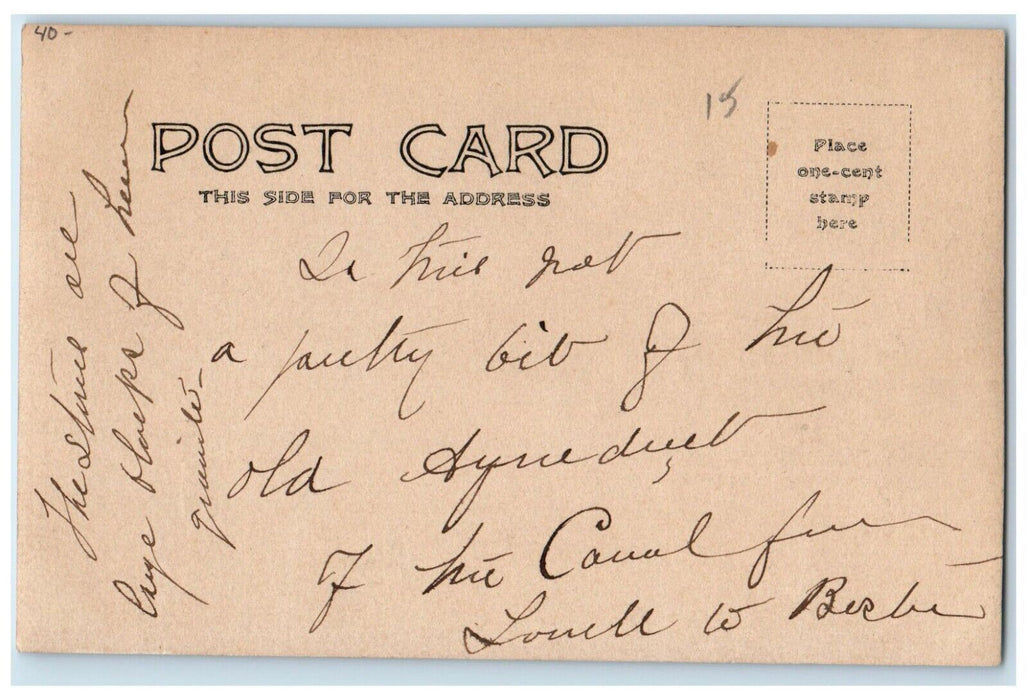 40-
15
POST CARD
THIS SIDE FOR THE ADDRESS
Place
one-cent
stamp
here
Is this not
a pretty bit of the
old Aqueduct
of the Canal from
Lowell to Boston
The stones are
huge blocks of hewn
granite -